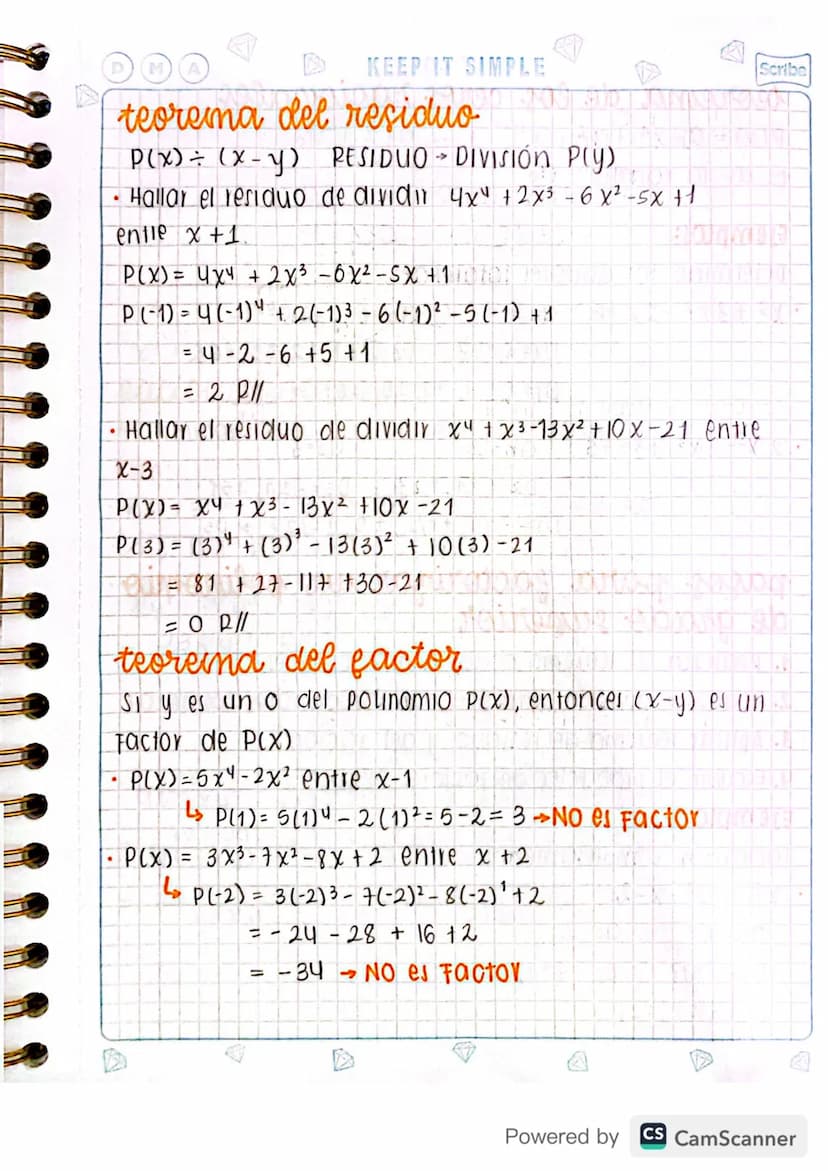 D M A
KEEP IT SIMPLE
Scribe
teorema del residuo
P(x) ÷ (x - y) RESIDUO → DIVISIÓN P(y)
· Hallar el residuo de dividir 4x⁴ + 2x³ - 6x² - 5x + 1
entre x + 1.
P(x) = 4x⁴ + 2x³ - 6x² - 5x + 1
P(-1) = 4(-1)⁴ + 2(-1)³ - 6(-1)² - 5(-1) + 1
= 4 - 2 - 6 + 5 + 1
= 2 R//
· Hallar el residuo de dividir x⁴ + x³ - 13x² + 10x - 21 entre
x - 3
P(x) = x⁴ + x³ - 13x² + 10x - 21
P(3) = (3)⁴ + (3)³ - 13(3)² + 10(3) - 21
= 81 + 27 - 117 + 30 - 21
= 0 R//
teorema del factor
Si y es un 0 del polinomio P(x), entonces (x-y) es un
Factor de P(x)
· P(x) = 5x⁴ - 2x² entre x - 1
↳ P(1) = 5(1)⁴ - 2(1)² = 5 - 2 = 3 → NO es Factor
· P(x) = 3x³ - 7x² - 8x + 2 entre x + 2
↳ P(-2) = 3(-2)³ - 7(-2)² - 8(-2)¹ + 2
= - 24 - 28 + 16 + 2
= - 34 → NO es Factor
Powered by CS CamScanner